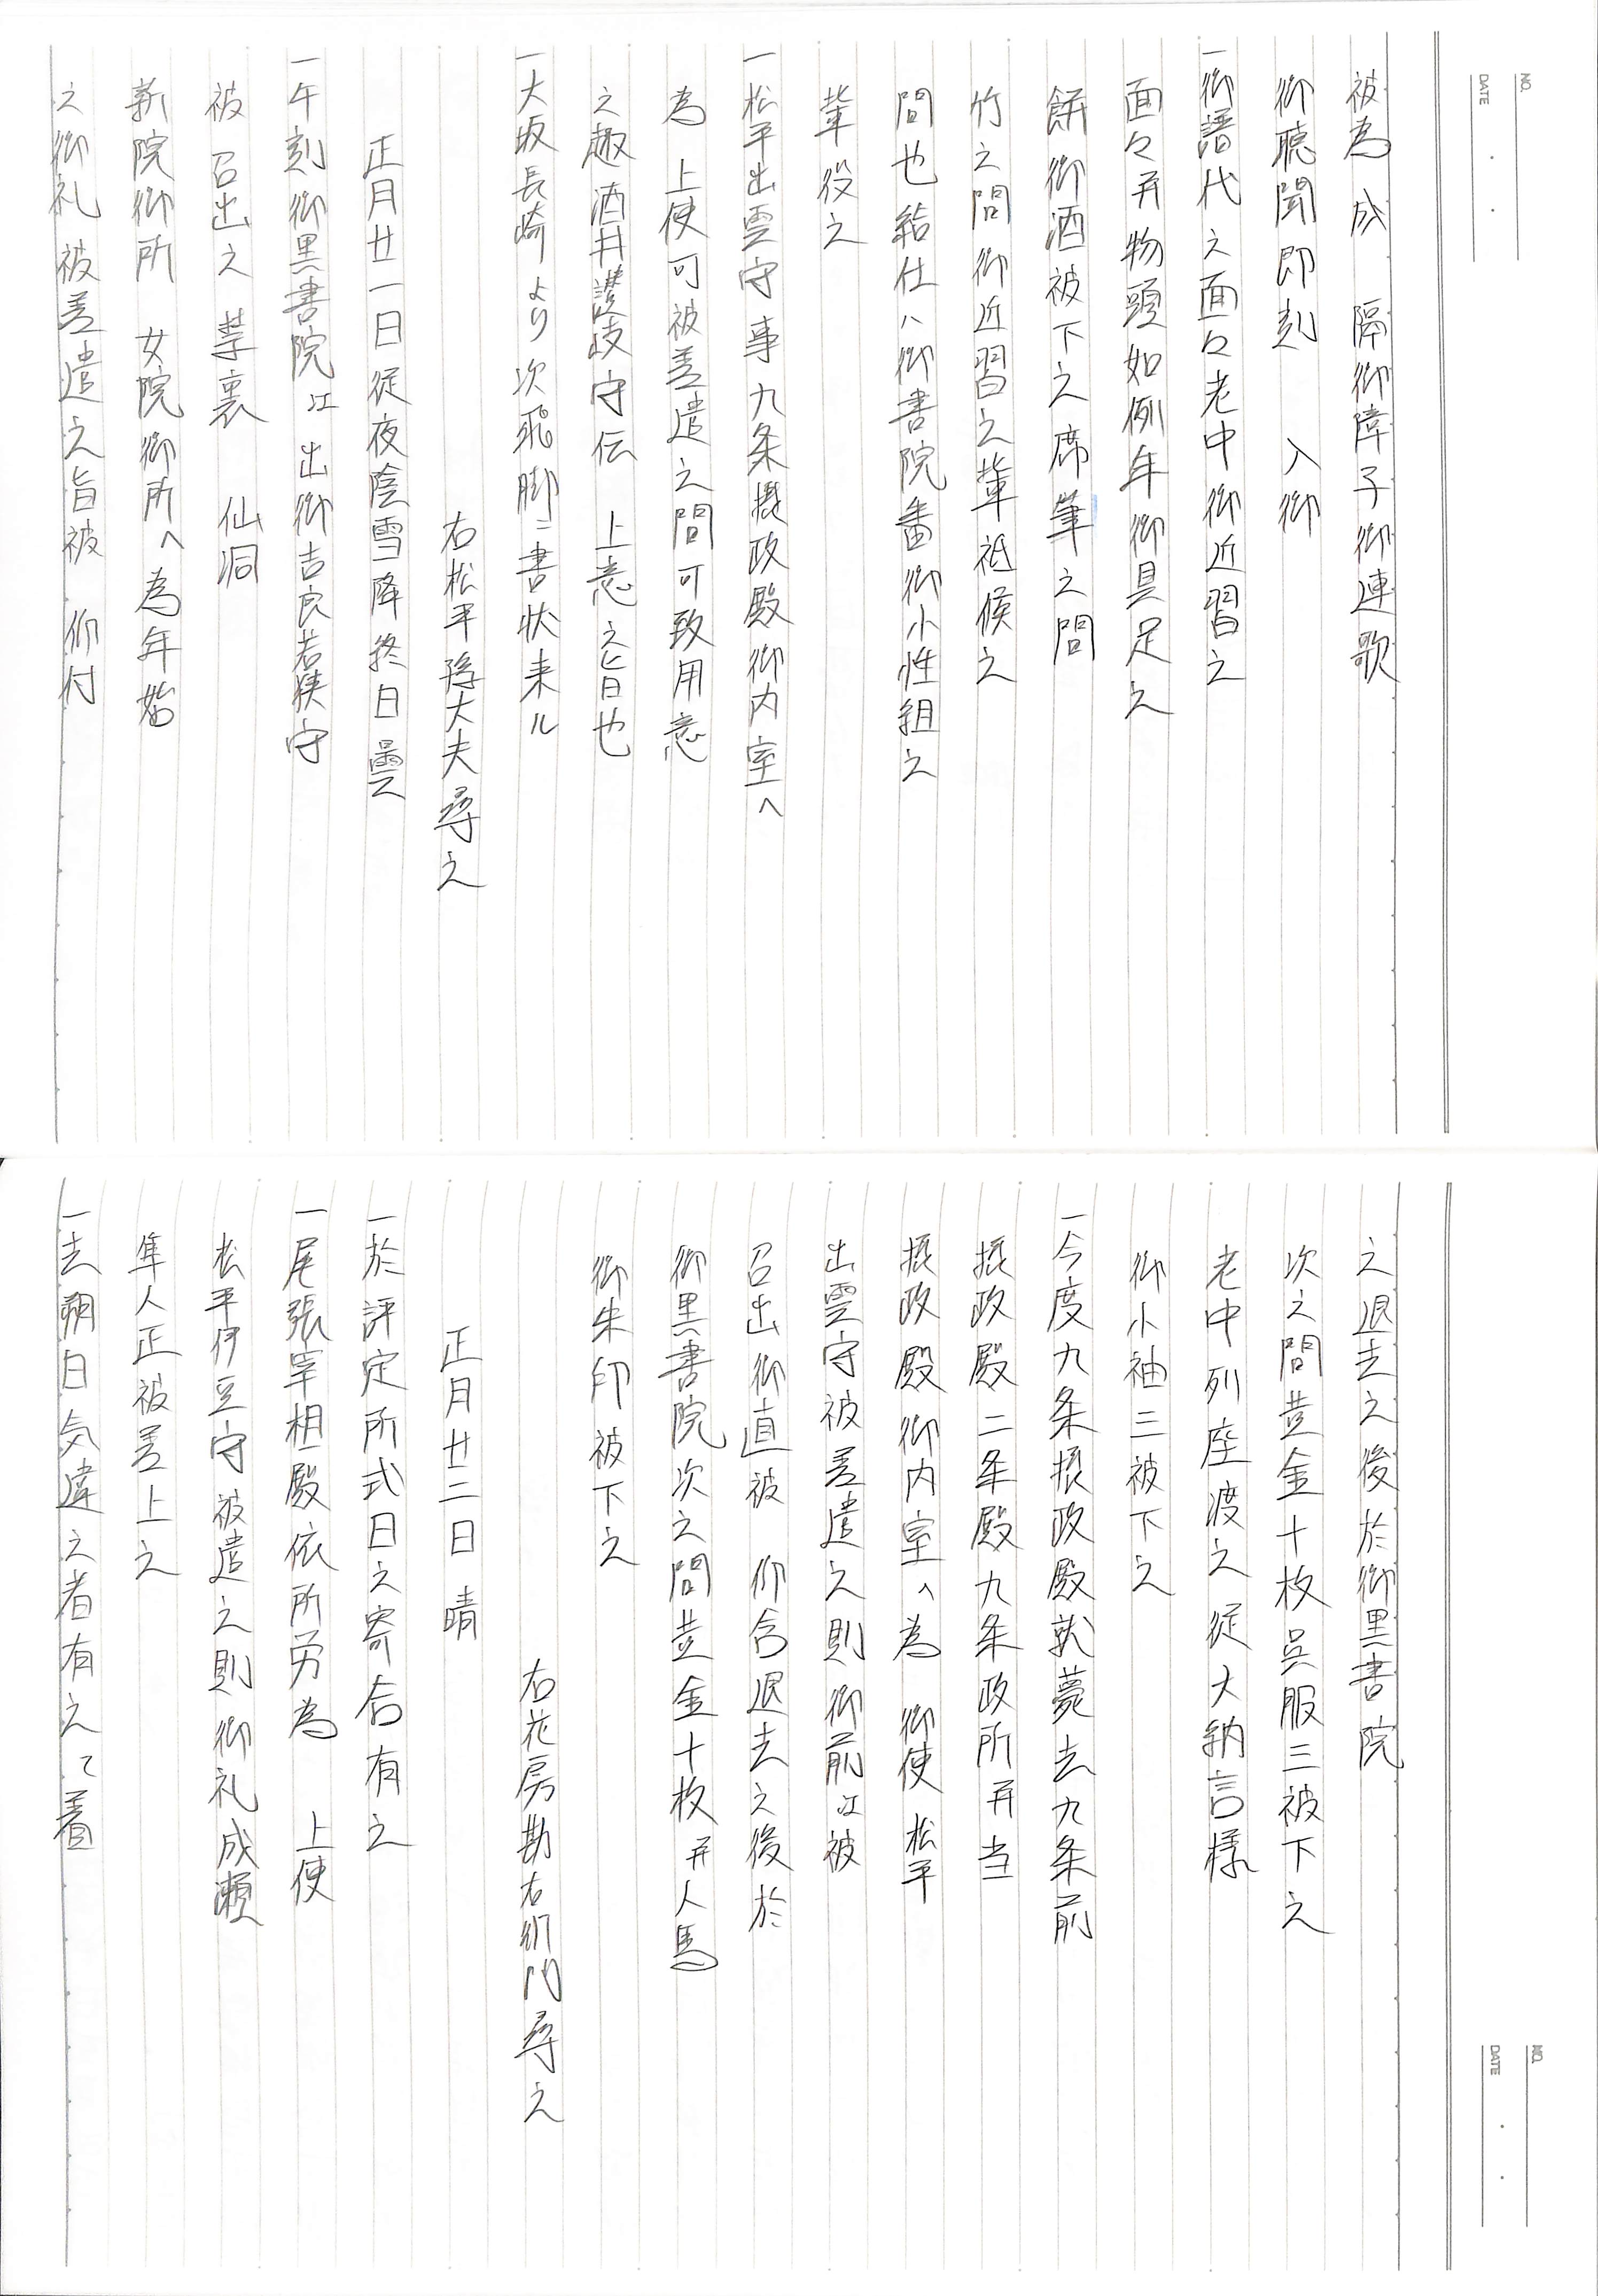 NO.
DATE
被為 成 隔御障子御連歌
御聴聞即刻 入御
一御譜代之面々老中御近習之
面々并物頭如例年御具足之
餅御酒被下之席筆之間
竹之間御近習之輩祗候之
間也給仕ハ御書院番御小性組之
輩役之
一松平出雲守事九条摂政殿御内室へ
為 上使可被差遣之間可致用意
之趣酒井讃岐守伝 上意之旨也
一大坂長崎より次飛脚ニ書状来ル
右松平隼大夫尋之
正月廿一日従夜陰雪降終日曇
一午刻御黒書院江 出御吉良若狭守
被 召出之 禁裏 仙洞
新院御所 女院御所へ為年始
之御礼被差遣之旨被 仰付
NO.
DATE
之退去之後於御黒書院
次之間黄金十枚呉服三被下之
老中列座渡之従大納言様
御小袖三被下之
一今度九条摂政殿就薨去九条前
摂政殿二条殿九条政所并当
摂政殿御内室へ為 御使松平
出雲守被差遣之則御前江被
召出御直被 仰含退去之後於
御黒書院次之間黄金十枚并人馬
御朱印被下之
右花房勘右衛門尋之
正月廿二日 晴
一於評定所式日之寄合有之
一尾張宰相殿依所労為 上使
松平伊豆守被遣之則御礼成瀬
隼人正被差上之
一去朔日気違之者有之て着